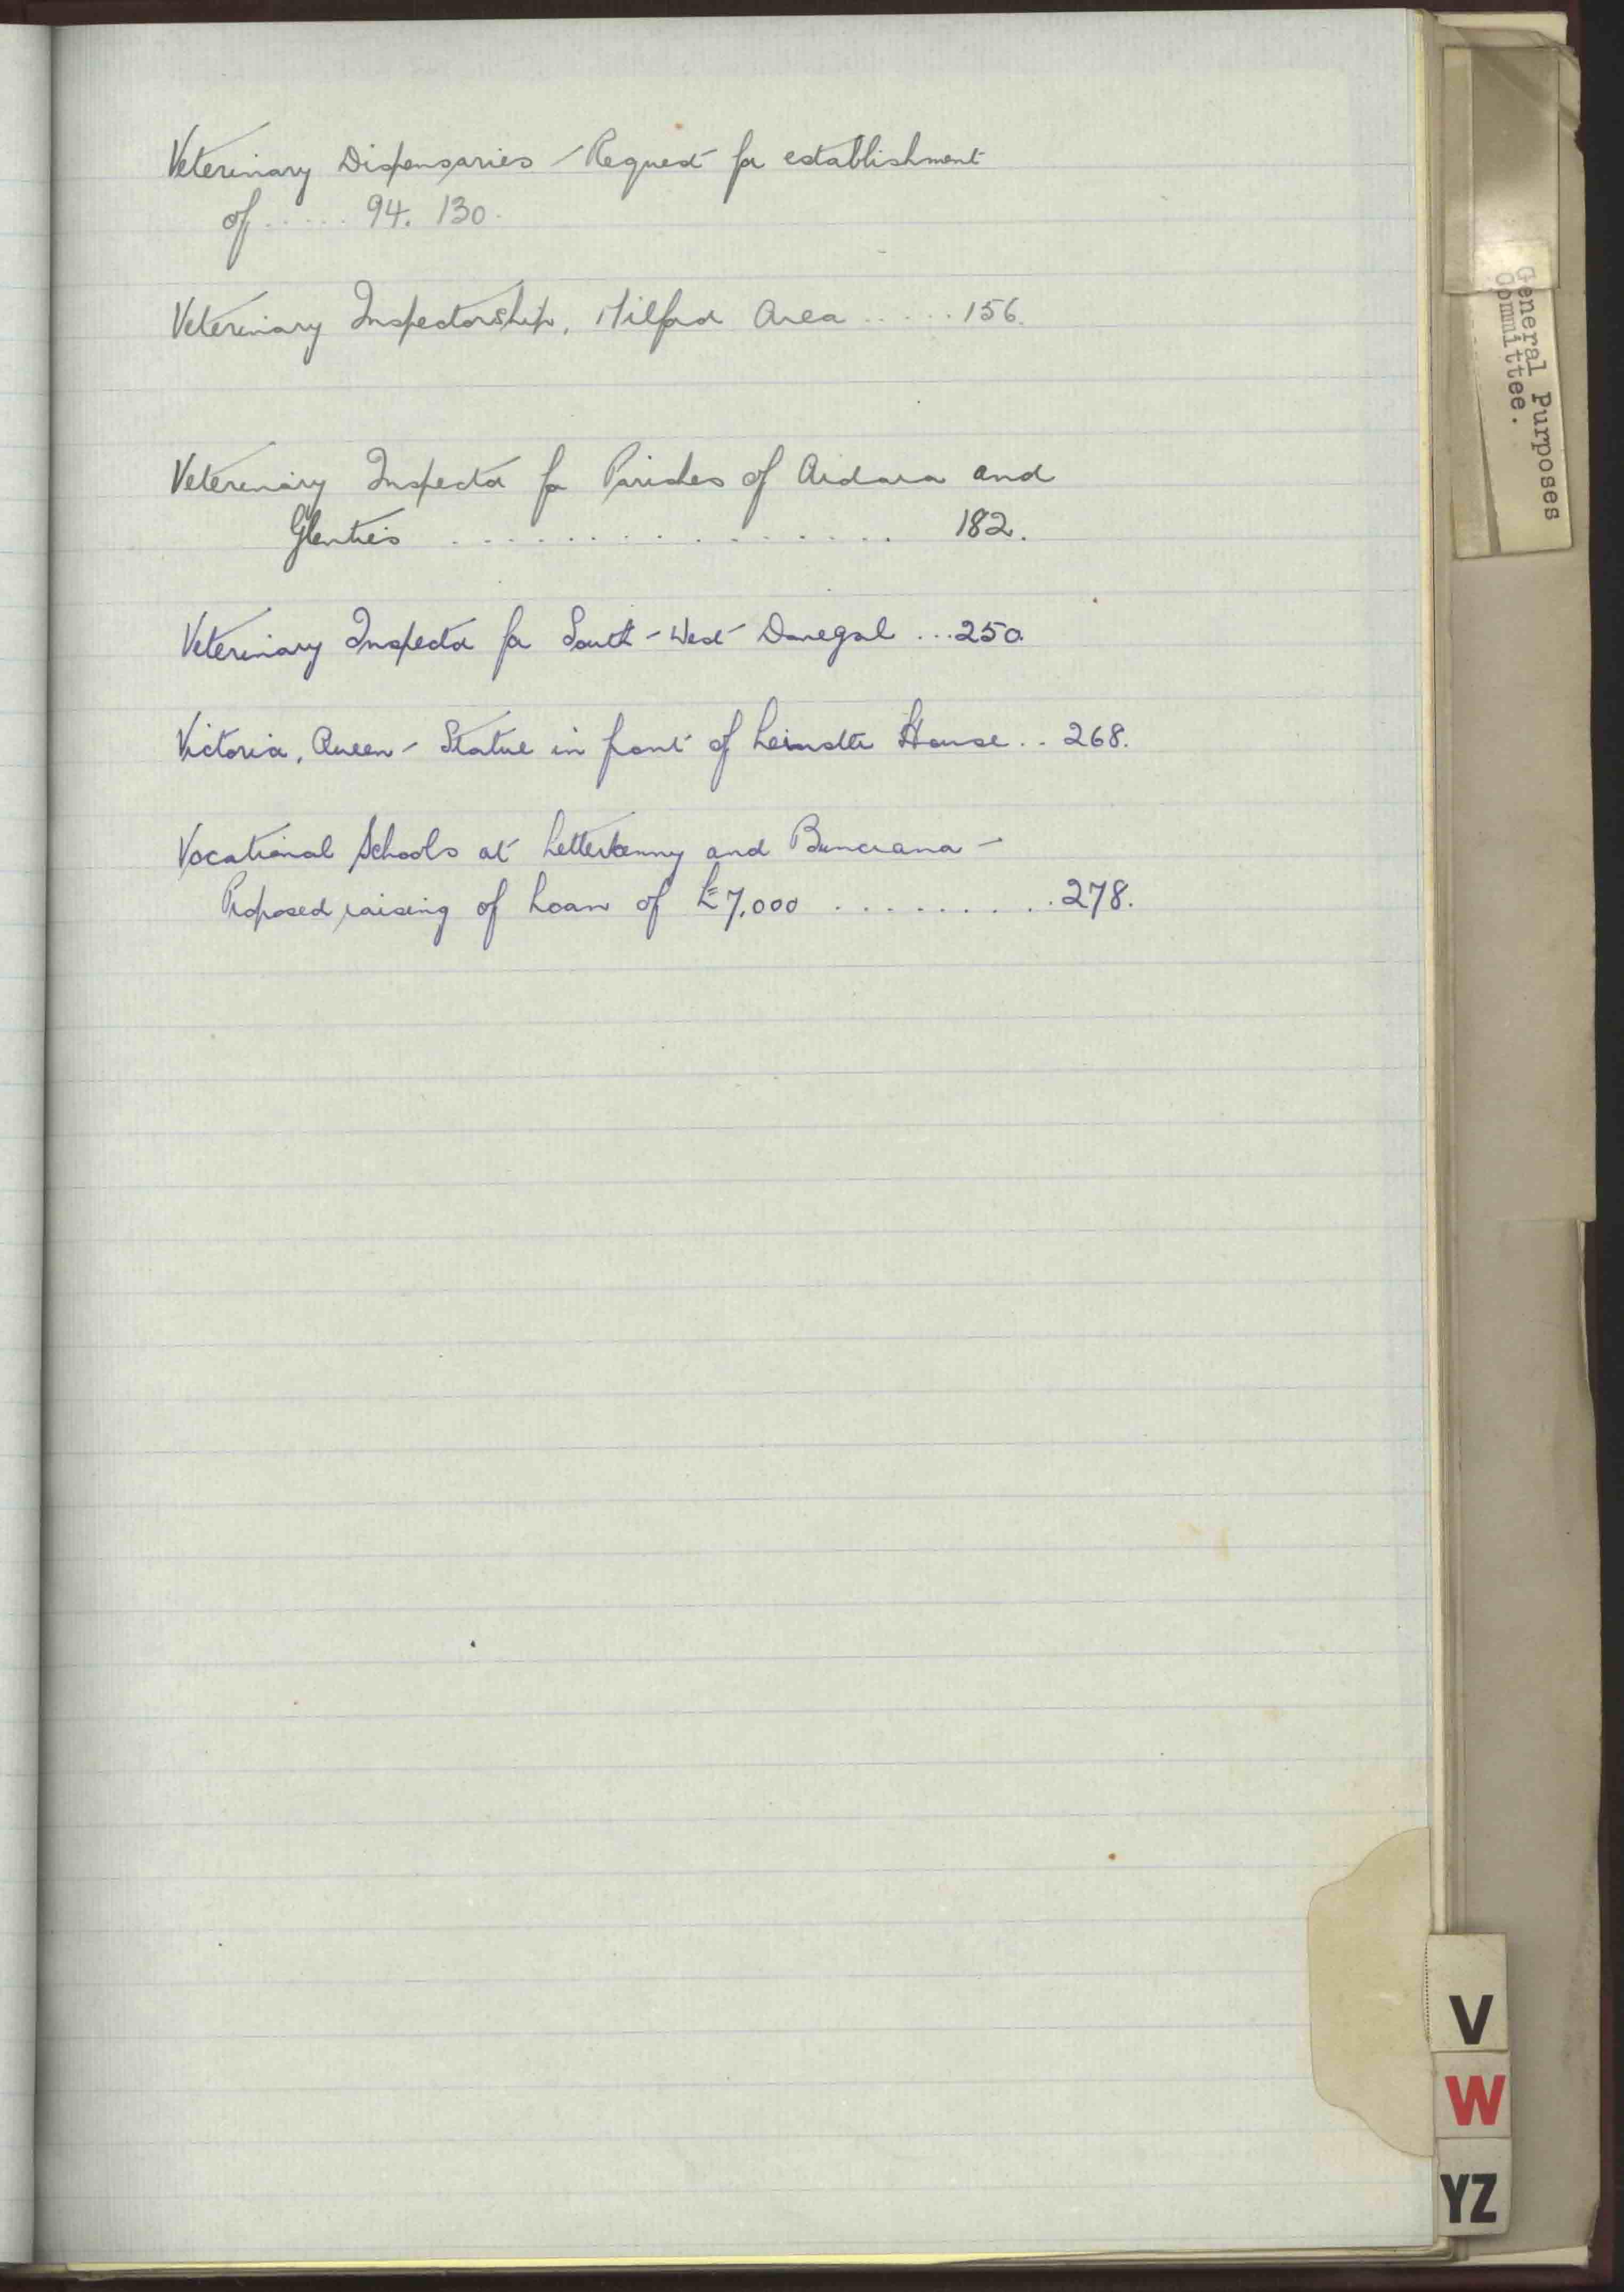 Veterinary Dispensaries - Request for establishment
of ..... 94. 130.
Veterinary Inspectorship, Milford Area ..... 156.
Veterinary Inspector for Parishes of Ardara and
Glenties ................ 182.
Veterinary Inspector for South-West Donegal ...250.
Victoria, Queen - Statue in front of Leinster House .. 268.
Vocational Schools at Letterkenny and Buncrana -
Proposed raising of Loan of £7,000 .......... 278.
General Purposes
Committee.
V
W
YZ